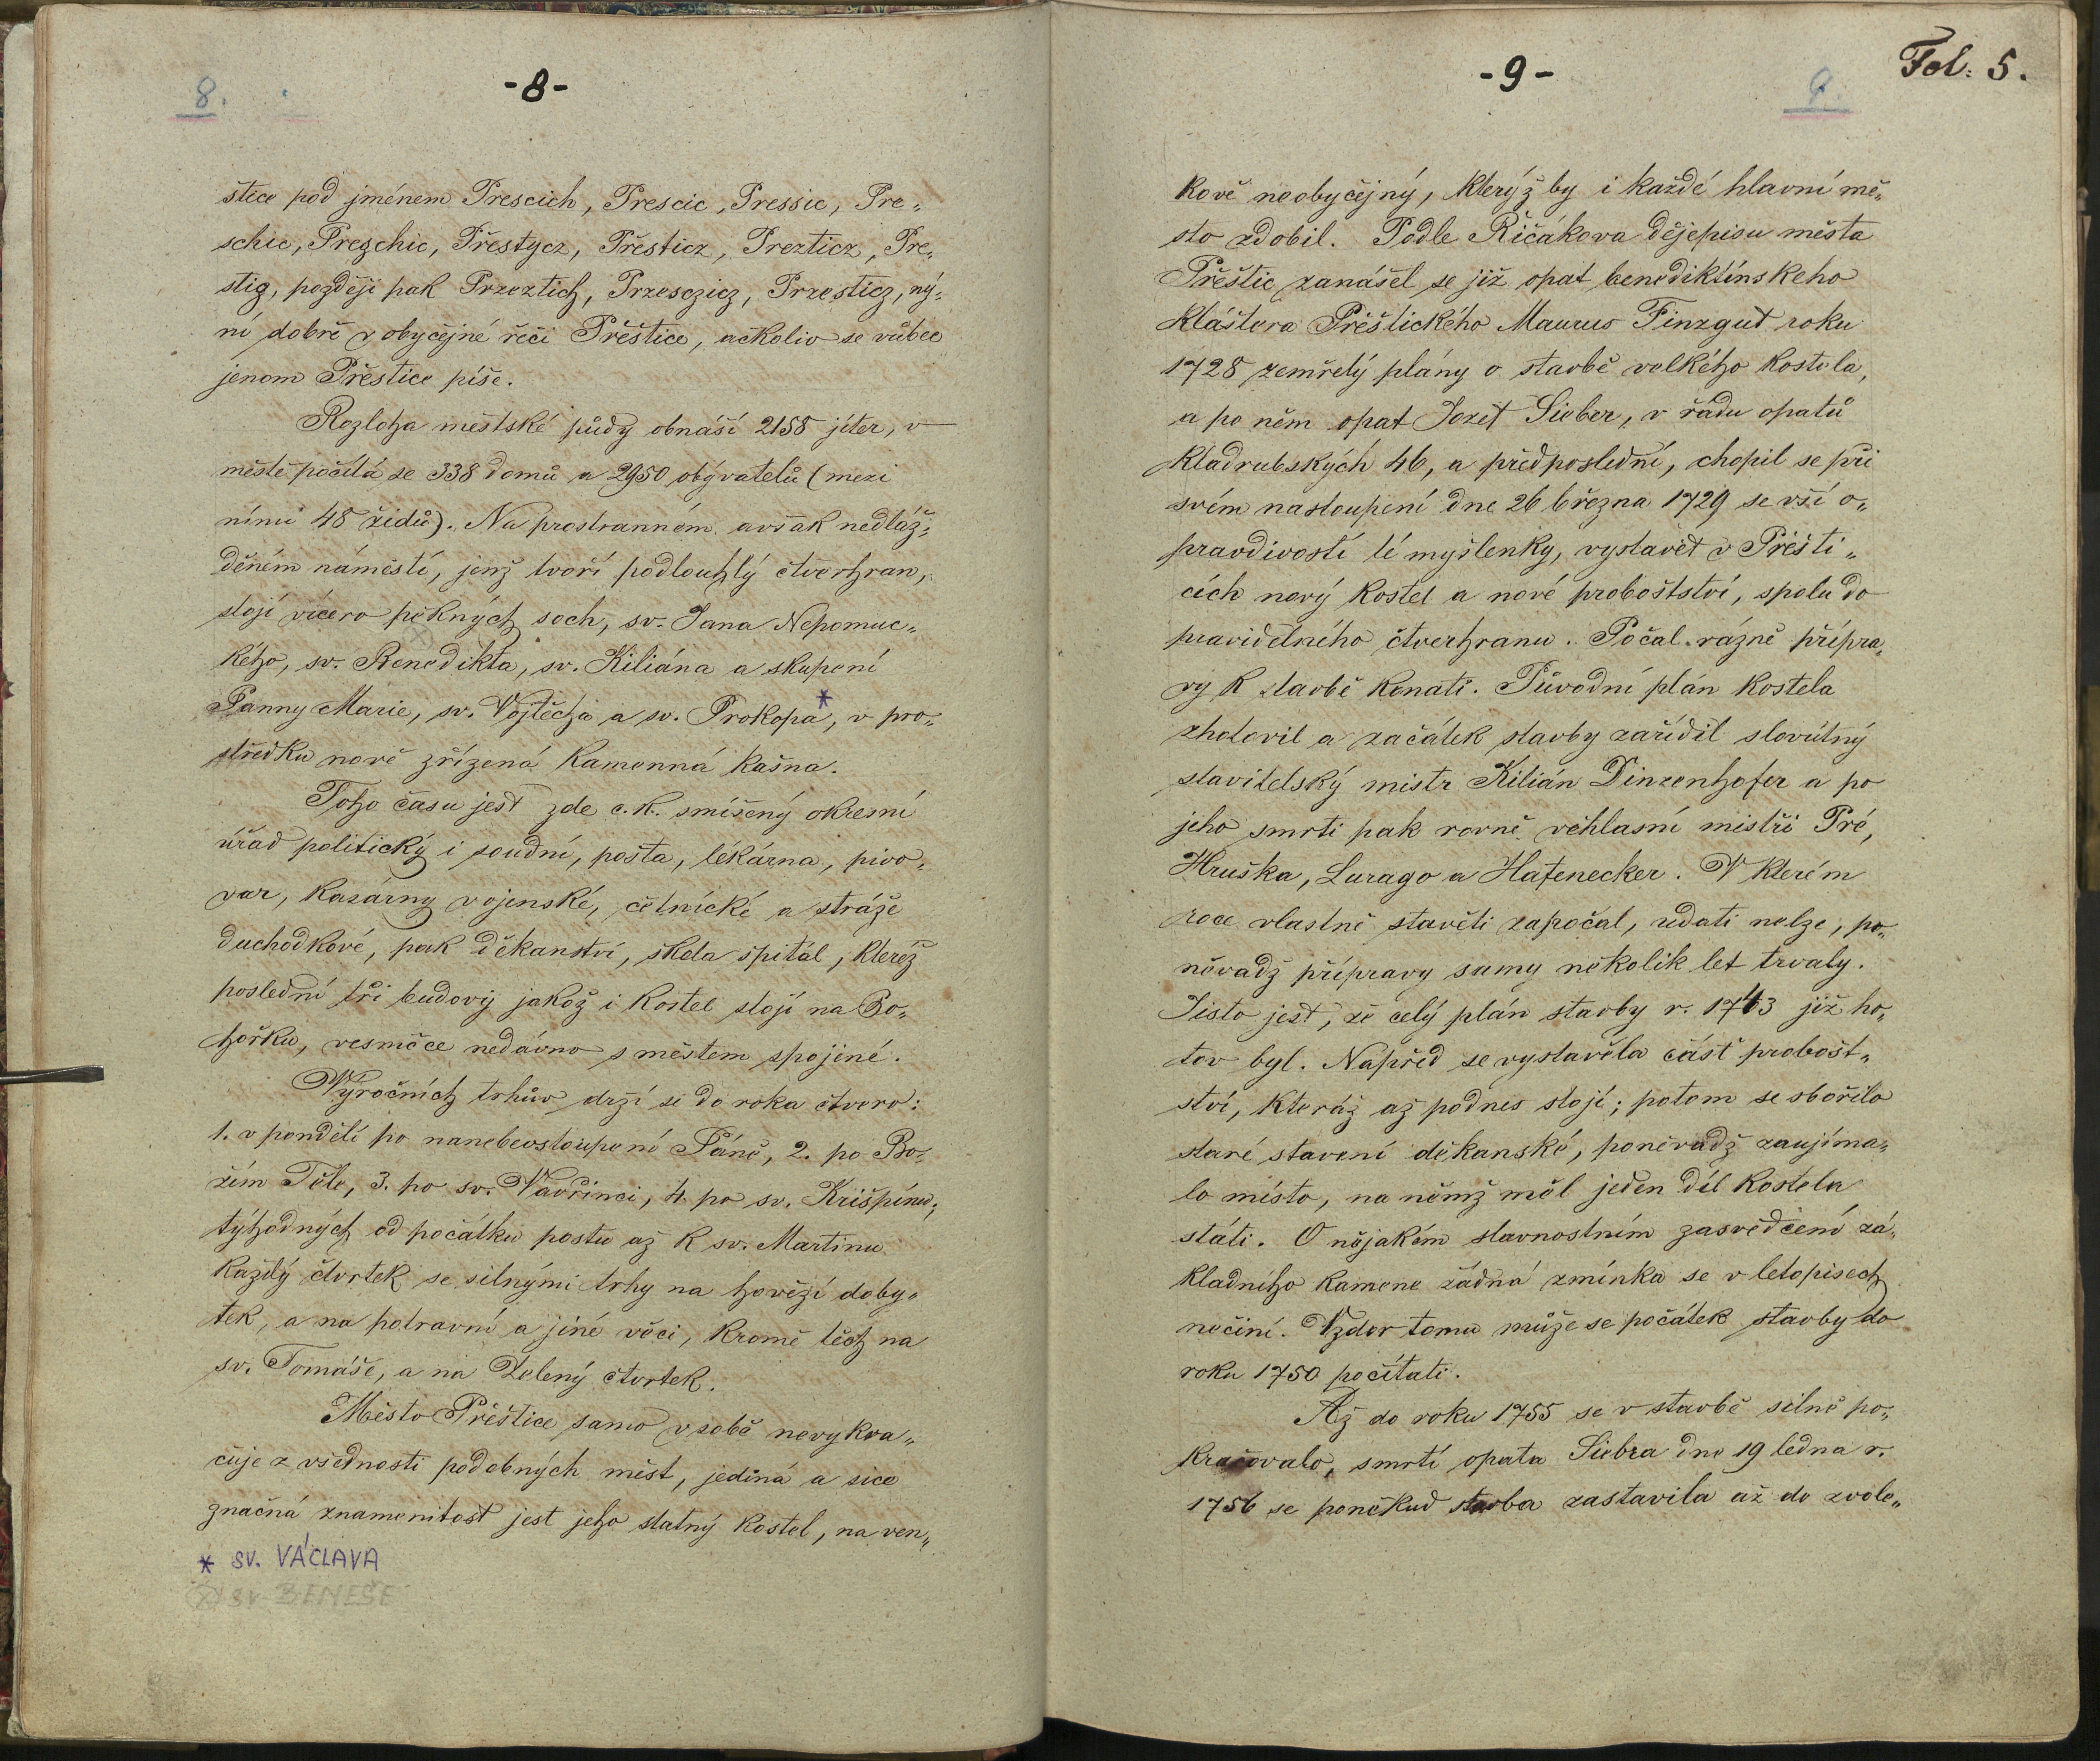 8.
-8-
štice pod jménem Prescich, Prescic, Pressic, Pre„
schic, Pregchic, Přestycz, Přesticz, Prezticz, Pre„
stig, později pak Przeztich, Przesczicz, Przesticz, ný„
ní dobře v obyčejné řeči Přeštice, ačkoliv se vůbec
jenom Přestice píše.
Rozloha městské půdy obnáší 2158 jiter, v
městě počítá se 338 domů a 2950 obyvatelů (mezi
nimi 48 židů). Na prostranném avšak nedláž„
děném náměstí, jenž tvoří podlouhlý čtverhran,
stojí vícero pěkných soch, sv. Jana Nepomuc„
kého, sv. Benedikta, sv. Kiliána a skupení
Panny Marie, sv. Vojtěcha a sv. Prokopa*, v pro„
středku nově zřízená kamenná kašna.
Toho času jest zde c. k. smíšený okresní
úřad politický i soudní, pošta, lékárna, pivo„
var, kasárny vojenské, četnické a stráže
duchodkové, pak děkanství, škola špitál, kteréž
poslední tři budovy jakož i kostel stojí na Bo„
hořku, vesničce nedávno s městem spojiné.
Výročních trhův drží se do roka čtvero:
1. v pondělí po nanebevstoupení Páně, 2. po Bo„
žím Těle, 3. po sv. Vavřinci, 4. po sv. Krišpínu;
týhodných od počátku postu až k sv. Martinu
každý čtvrtek se silnými trhy na hovězí doby„
tek, a na potravní a jiné věci, kromě těch na
sv. Tomáše, a na Zelený čtvrtek.
Město Přeštice samo v sobě nevykra„
čuje z všednosti podobných měst, jediná a sice
značná znamenitost jest jeho statný kostel, na ven„
* SV. VÁCLAVA
x) SV. BENEŠE
-9-
9.
Fol: 5.
kově neobyčejný, kterýž by i každé hlavní mě„
sto zdobil. Podle Řičákova dějepisu města
Přeštic zanášel se již opat benediktínskeho
kláštera Přeštického Maurus Finzgut roku
1728 zemřelý plány o stavbě velkého kostela,
a po něm opat Jozef Sieber, v řadu opatů
kladrubských 46, a předposlední, chopil se při
svém nastoupení dne 26 března 1729 se vší o„
pravdivostí té myšlenky, vystavět v Přešti„
cích nový kostel a nové probošství, spolu do
pravidelného čtverhranu. Počal rázně přípra„
vy k stavbě konati. Původní plán kostela
zhotovil a začátek stavby zařídil slovútný
stavitelský mistr Kilián Dinzenhofer a po
jeho smrti pak rovně věhlasní mistři Pré,
Hruška, Lurago a Hafenecker. V kterém
roce vlastně stavěti započal, udati nelze, po„
něvadž přípravy samy několik let trvaly.
Jisto jest, že celý plán stavby r. 1743 již ho„
tov byl. Napřed se vystavěla část probošt„
ství, kteráž až podnes stojí; potom se sbořilo
staré stavení děkanské, poněvadž zaujíma„
lo místo, na němž měl jeden díl kostela
státi. O nějakém slavnostním zasvěcení zá„
kladního kamene žádná zmínka se v letopisech
nečiní. Vzdor tomu může se počátek stavby do
roku 1750 počítati.
Až do roku 1755 se v stavbě silně po„
kračovalo, smrtí opata Siebra dne 19 ledna r.
1756 se poněkud stavba zastavila až do zvole„